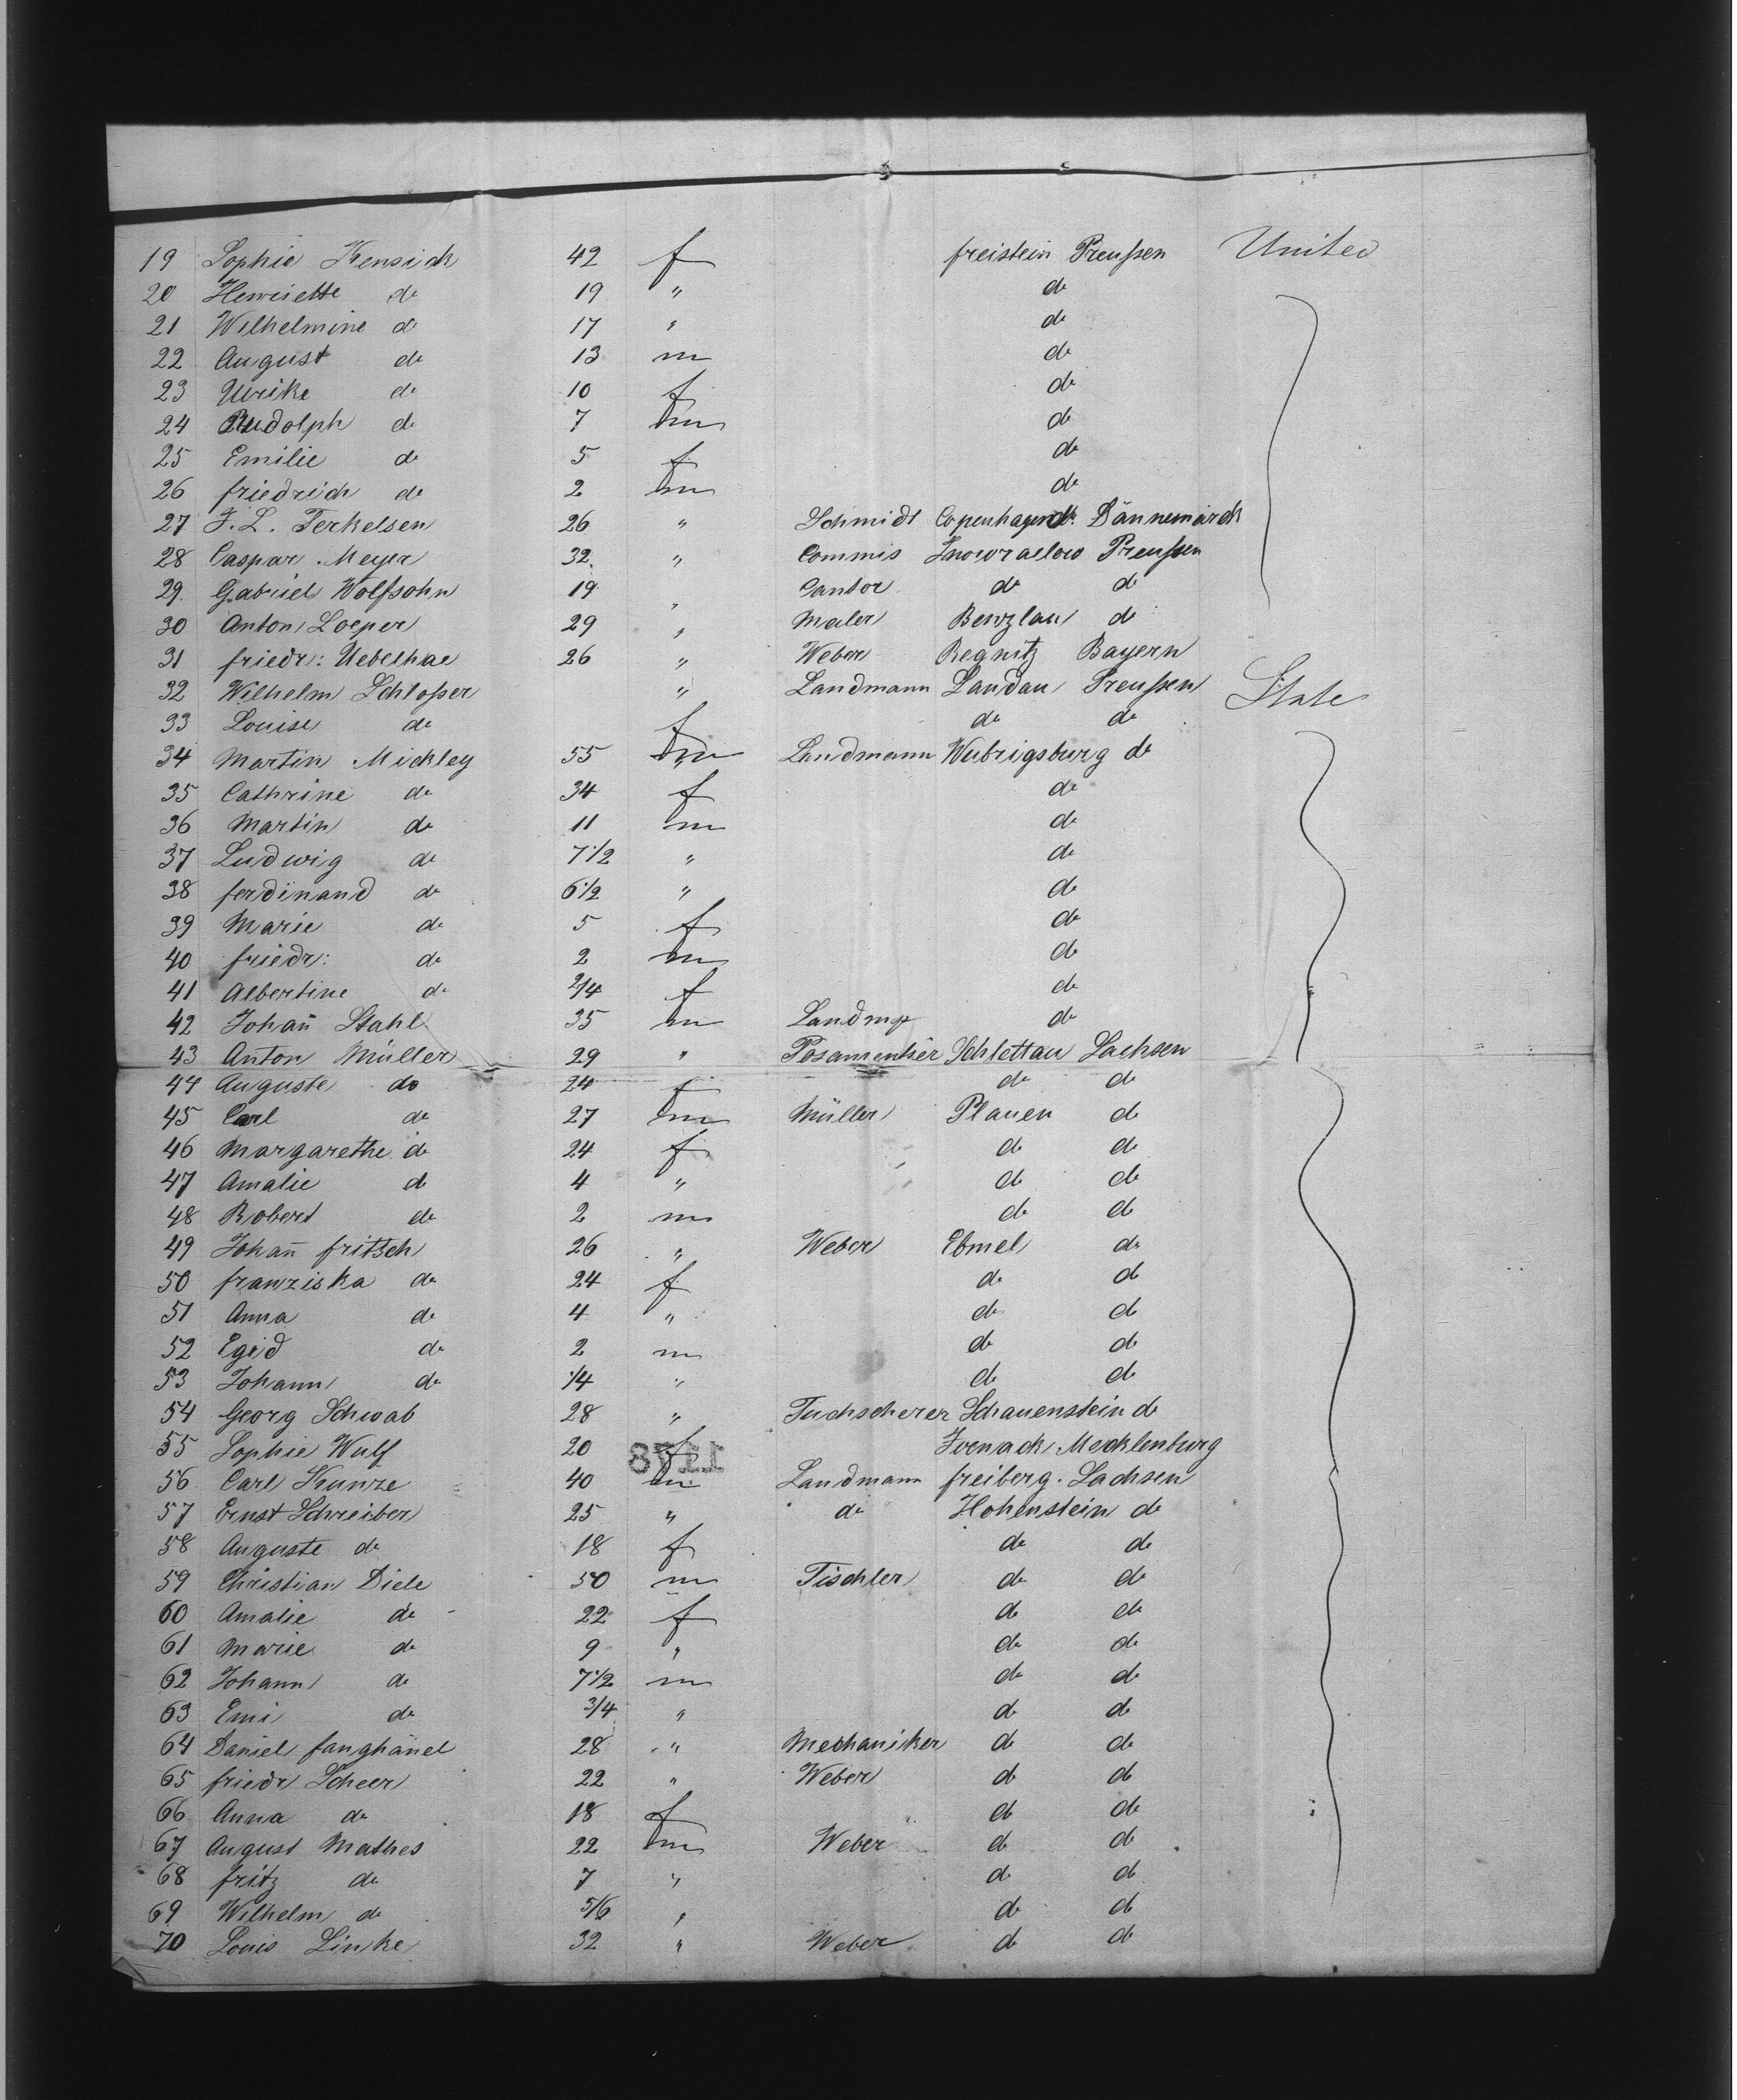 19 Sophie Kensick 42 f freistein Preußen United
20 Henriette do 19 " do
21 Wilhelmine do 17 " do
22 August do 13 m do
23 Ulrike do 10 f do
24 Rudolph do 7 m do
25 Emilie do 5 f do
26 friedrich do 2 m do
27 F. L. Terkelsen 26 " Schmidt Copenhagen Dännemarck
28 Caspar Meyer 32 " Commis Inowraclow Preußen
29 Gabriel Wolfsohn 19 " Cantor do do
30 Anton Loeper 29 " Maler Benzlau do
31 friedr: Uebelhae 26 " Weber Regnitz Bayern
32 Wilhelm Schloßer " Landmann Landau Preußen State
33 Louise do f do do
34 Martin Mickley 55 m Landmann Wubrigsburg do
35 Cathrine do 34 f do
36 Martin do 11 m do
37 Ludwig do 7 1/2 " do
38 ferdinand do 6 1/2 " do
39 Marie do 5 f do
40 friedr: do 2 m do
41 Albertine do 2/4 f do
42 Johan̄ Stahl 35 m do
43 Anton Müller 29 " Posamentier Schlettau Sachsen
44 Auguste do 24 f do do
45 Carl do 27 m Müller Plauen do
46 Margarethe do 24 f do do
47 Amalie do 4 " do do
48 Robert do 2 m do do
49 Johan̄ fritsch 26 " Weber Ebmel do
50 franziska do 24 f do do
51 Anna do 4 " do do
52 Egid do 2 m do do
53 Johann do 1/4 " do do
54 Georg Schwab 28 " Tuchscherer Schauenstein do
55 Sophie Wulf 20 f Ivenack Mecklenburg
56 Carl Kunze 40 m Landmann freiberg. Sachsen
57 Ernst Schreiber 25 " do Hohenstein do
58 Auguste do 18 f do do
59 Christian Diele 50 m Tischler do do
60 Amalie do 22 f do do
61 Marie do 9 " do do
62 Johann do 7 1/2 m do do
63 Emi do 3/4 " do do
64 Daniel fanghänel 28 " Mechaniker do do
65 friedr Scheer 22 " Weber do do
66 Anna do 18 f do do
67 August Mathes 22 m Weber do do
68 fritz do 7 " do do
69 Wilhelm do 5/6 " do do
70 Louis Linke 32 " Weber do do